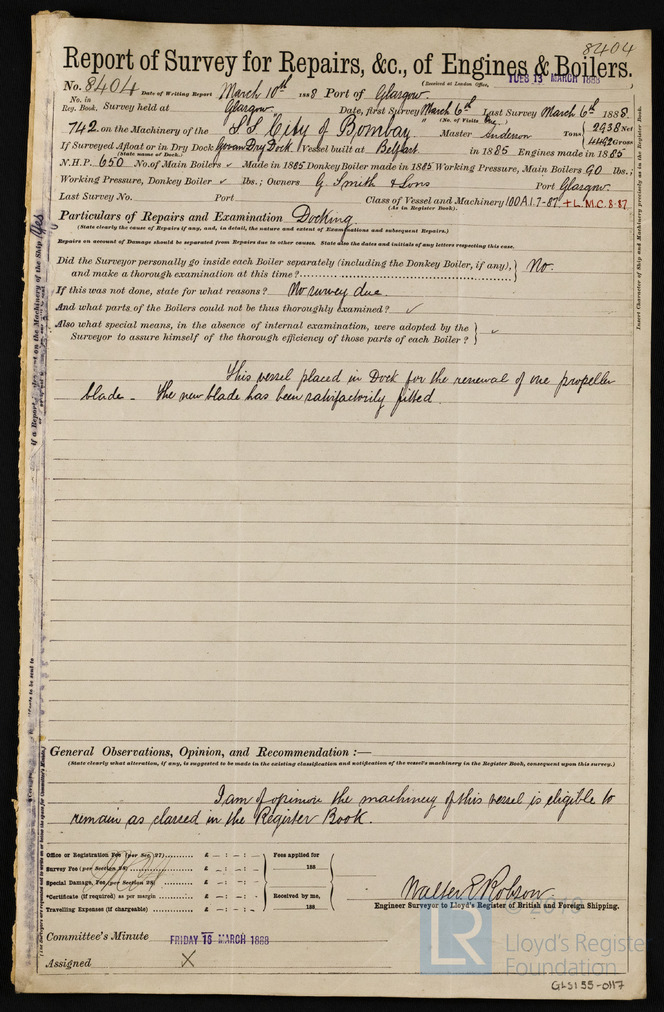 8404
Report of Survey for Repairs, &c., of Engines & Boilers.
No. 8404 Date of Writing Report March 10th 1888 Port of Glasgow (Received at London Office, TUES 13 MARCH 1888
No. in Reg. Book. Survey held at Glasgow Date, first Survey March 6th Last Survey March 6th 1888.
(No. of Visits One)
742 on the Machinery of the S.S. "City of Bombay" Master Anderson Tons 2438 Net 4492 Gross
If Surveyed Afloat or in Dry Dock Govan Dry Dock Vessel built at Belfast in 1885 Engines made in 1885
(State name of Dock.)
N.H.P. 650 No. of Main Boilers ✓ Made in 1885 Donkey Boiler made in 1885 Working Pressure, Main Boilers 90 lbs.;
Working Pressure, Donkey Boiler ✓ lbs.; Owners G Smith & Sons Port Glasgow
Last Survey No. Port Class of Vessel and Machinery 100A1.7-87. + L.M.C. 8.87
(As in Register Book).
Particulars of Repairs and Examination Docking
(State clearly the cause of Repairs if any, and, in detail, the nature and extent of Examinations and subsequent Repairs.)
Repairs on account of Damage should be separated from Repairs due to other causes. State also the dates and initials of any letters respecting this case.
Did the Surveyor personally go inside each Boiler separately (including the Donkey Boiler, if any), and make a thorough examination at this time? No.
If this was not done, state for what reasons? No survey due.
And what parts of the Boilers could not be thus thoroughly examined? ✓
Also what special means, in the absence of internal examination, were adopted by the
Surveyor to assure himself of the thorough efficiency of those parts of each Boiler? ✓
This vessel placed in Dock for the renewal of one propeller
blade - The new blade has been satisfactorily fitted.
General Observations, Opinion, and Recommendation :—
(State clearly what alteration, if any, is suggested to be made in the existing classification and notification of the vessel's machinery in the Register Book, consequent upon this survey.)
I am of opinion the machinery of this vessel is eligible to
remain as classed in the Register Book.
Office or Registration Fee (per Sec. 27) £ - : - : - Fees applied for
Survey Fee (per Section 28) £ - : - : - 188
Special Damage Fee (per Section 28) £ - : - : -
*Certificate (if required) as per margin £ - : - : - Received by me,
Travelling Expenses (if chargeable) £ - : - : - 188
Walter E Robson
Engineer Surveyor to Lloyd's Register of British and Foreign Shipping.
Committee's Minute FRIDAY 16 MARCH 1888
Assigned X
Insert Character of Ship and Machinery precisely as in the Register Book.
Yes
LR
© 2019
Lloyd's Register
Foundation
GLS155-0117